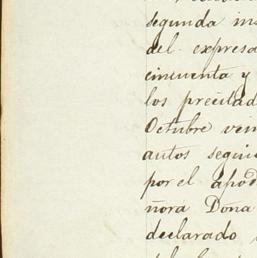 segunda ins
del expresa
cincuenta y
los precitad
Octubre vein
autos seguid
por el apod
ñora Doña
declarado